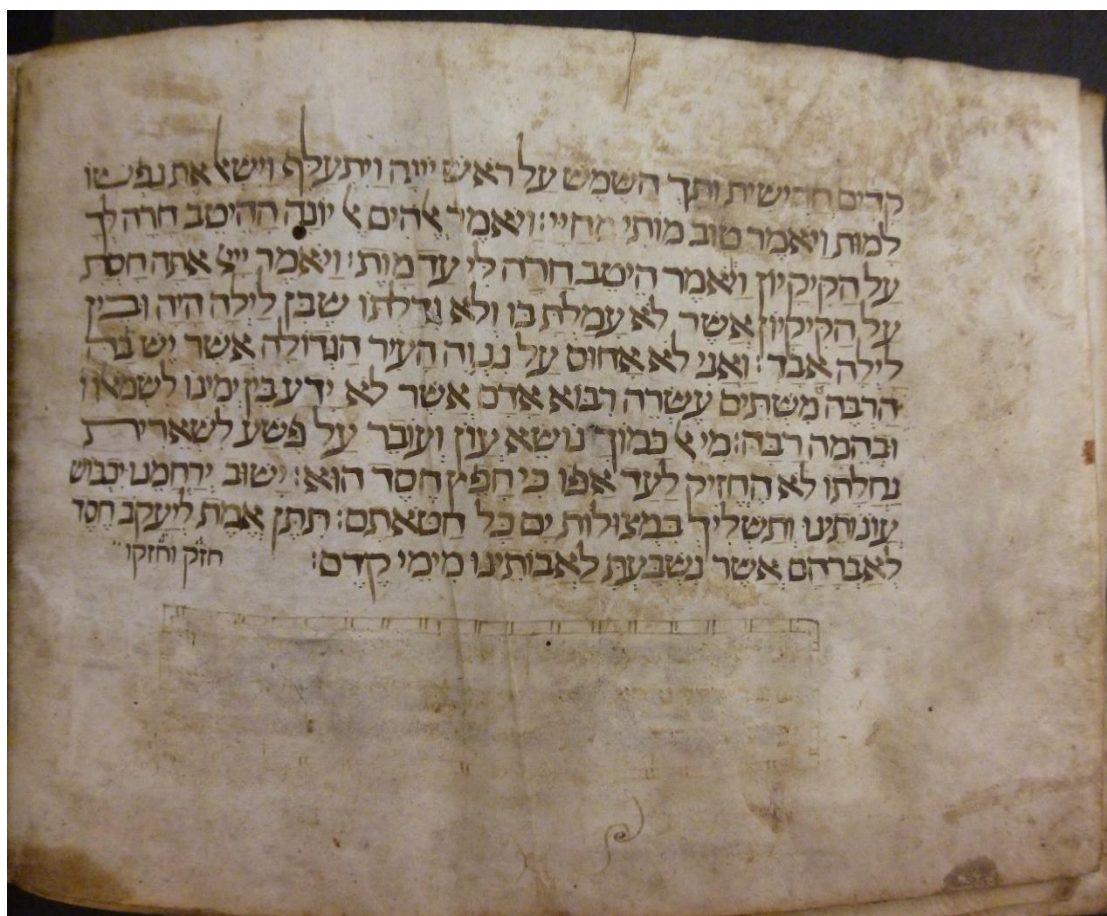 קדים חרישית ותך השמש על ראש יונה ויתעלף וישאל את נפשו
למות ויאמר טוב מותי מחיי: ויאמר אלהים אל יונה ההיטב חרה לך
על הקיקיון ויאמר היטב חרה לי עד מות: ויאמר ייי אתה חסת
על הקיקיון אשר לא עמלת בו ולא גדלתו שבן לילה היה ובין
לילה אבד: ואני לא אחוס על ננוה העיר הגדולה אשר יש בה
הרבה משתים עשרה רבוא אדם אשר לא ידע בין ימינו לשמאלו
ובהמה רבה: מי אל כמוך נושא עון ועובר על פשע לשארית
נחלתו לא החזיק לעד אפו כי חפיץ חסד הוא: ישוב ירחמנו יכבוש
עונותינו ותשליך במצולות ים כל חטאתם: תתן אמת ליעקב חסד
לאברהם אשר נשבעת לאבותינו מימי קדם: חזק וחזקו